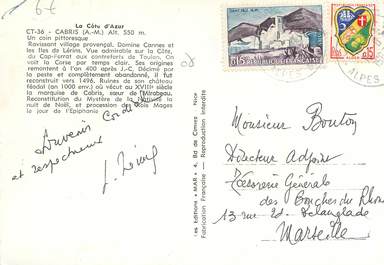 6€
La Côte d'Azur
CT-36 - CABRIS (A.-M.) Alt. 550 m.
Un coin pittoresque
Ravissant village provençal. Domine Cannes et
les Iles de Lérins. Vue admirable sur la Côte,
du Cap-Ferrat aux contreforts de Toulon. On
voit la Corse par temps clair. Ses origines
remontent à l'an 400 après J.-C. Décimé par
la peste et complètement abandonné, il fut
reconstruit vers 1496. Ruines de son château
féodal (an 1000 env.) où vécut au XVIIIe siècle
la marquise de Cabris, sœur de Mirabeau.
Reconstitution du Mystère de la Nativité la
nuit de Noël, et procession des Rois Mages
le jour de l'Epiphanie
Souvenir
et respectueux
Les Editions "MAR", 4, Bd de Cimiez Nice
Fabrication Française - Reproduction interdite
0,15 REPUBLIQUE FRANCAISE
ALPES
Monsieur Bouton
Directeur Adjoint
Trésorerie Générale
des Bouches du Rhône
13 rue Ed. Delanglade
Marseille